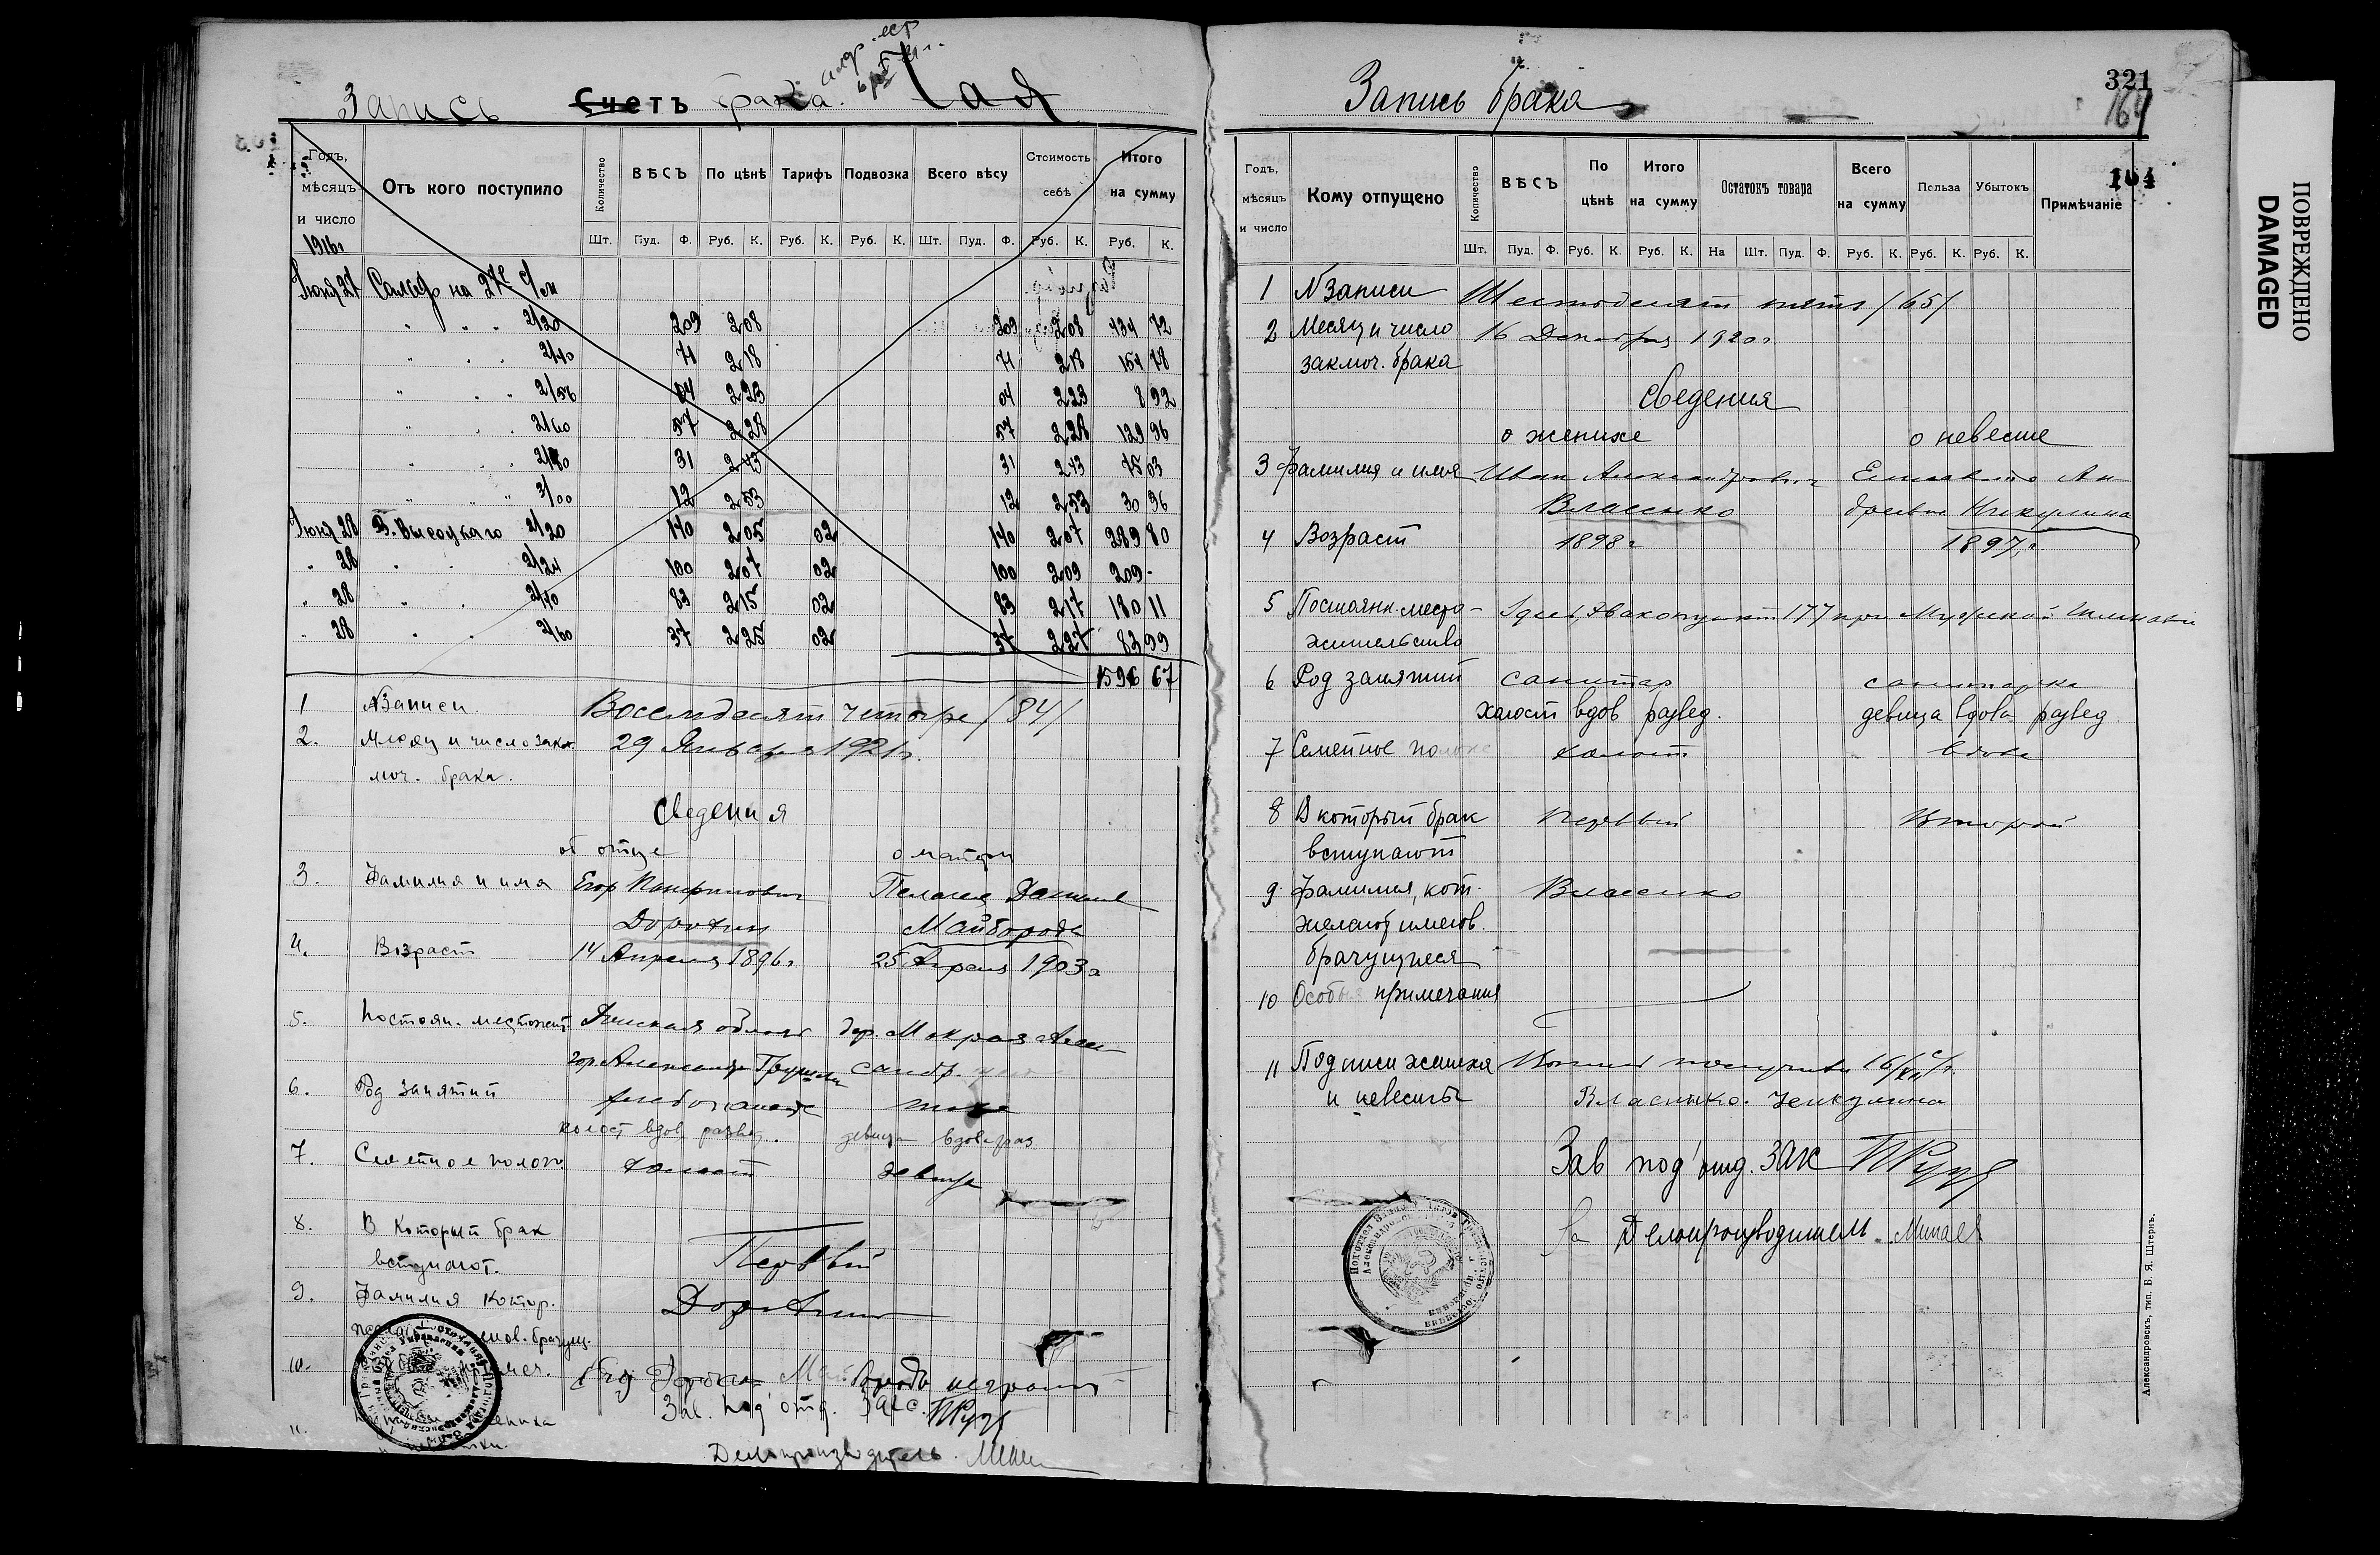 Запись Счетъ брака. Чая
Годъ, мѣсяцъ и число
Отъ кого поступило
Количество
ВѢСЪ
По цѣнѣ
Тарифъ
Подвозка
Всего вѣсу
Стоимость себѣ
Итого на сумму
Шт. Пуд. Ф. Руб. К. Руб. К. Руб. К. Шт. Пуд. Ф. Руб. К. Руб. К.
1916г
Июня 27 на 27е
2/20 209 2 08 209 2 08 434 72
2/40 71 2 18 71 2 18 154 78
2/56 04 2 23 04 2 23 8 92
2/60 57 2 28 57 2 28 129 96
31 2 43 31 2 43 75 03
3/00 12 2 53 12 2 53 30 36
Июня 28 В. Высоцкаго 2/20 140 2 05 02 140 2 07 289 80
" 28 " " 2/24 100 2 07 02 100 2 09 209 -
" 28 " " 2/40 83 2 15 02 83 2 17 180 11
" 28 " " 2/60 37 2 25 02 37 2 27 83 99
1596 67
1 N Записи. Восемдесят четыре /84/
2. Месяц и число закл
люч. брака. 29 Января 1921г.
Сведения
об отце о матери
3. Фамилия и имя Егор Пелагея
Доротин Майборода
4. Возраст 14 Апреля 1896г. 25 Апреля 1903г
5. Постоян. местожит. Донская дер. Мокрая
гор. Александр Грушев
6. Род занятий хлебопашец тоже
холост вдов развед. девица вдова раз
7. Семейное полож. холост девица
8. В который брак
вступают. Первый
9. Фамилия котор. Доротин
имов. брачущ.
10. Майборода неграмот
Зав. под'отд. Загс.
11.
Делопроизводитель.
Запись брака
321
164
164
Годъ, мѣсяцъ и число
Кому отпущено
Количество
ВѢСЪ
По цѣнѣ
Итого на сумму
Остатокъ товара
Всего на сумму
Польза
Убытокъ
Примѣчаніе
Шт. Пуд. Ф. Руб. К. Руб. К. На Шт. Пуд. Ф. Руб. К. Руб. К. Руб. К.
1 N записи Шестьдесят пять /65/
2 Месяц и число 16 Декабря 1920г
заключ. брака
Сведения
о женихе о невесте
3 Фамилия и имя Иван Александрович Елизавета Ан
Власенко дреевна Никулина
4 Возраст 1898г 1897г.
5 Постоянн. место- Здесь, Эвакопункт 177 при Мужской Гимназии
жительство
6 Род занятий санитар санитарка
холост вдов развед. девица вдова развед.
7 Семейное полож холост вдова
8 В который брак Первый Второй
вступают
9. Фамилия, кот. Власенко
желают именов.
брачущиеся
10 Особыя примечания
11 Подписи жениха Копию получили 16/XII с/г.
и невесты Власенко. Никулина
Зав под'отд. ЗАК
За Делопроизводитель. Минаев
Александровскъ, тип. Б. Я. Штернъ.
ПОВРЕЖДЕНО
DAMAGED